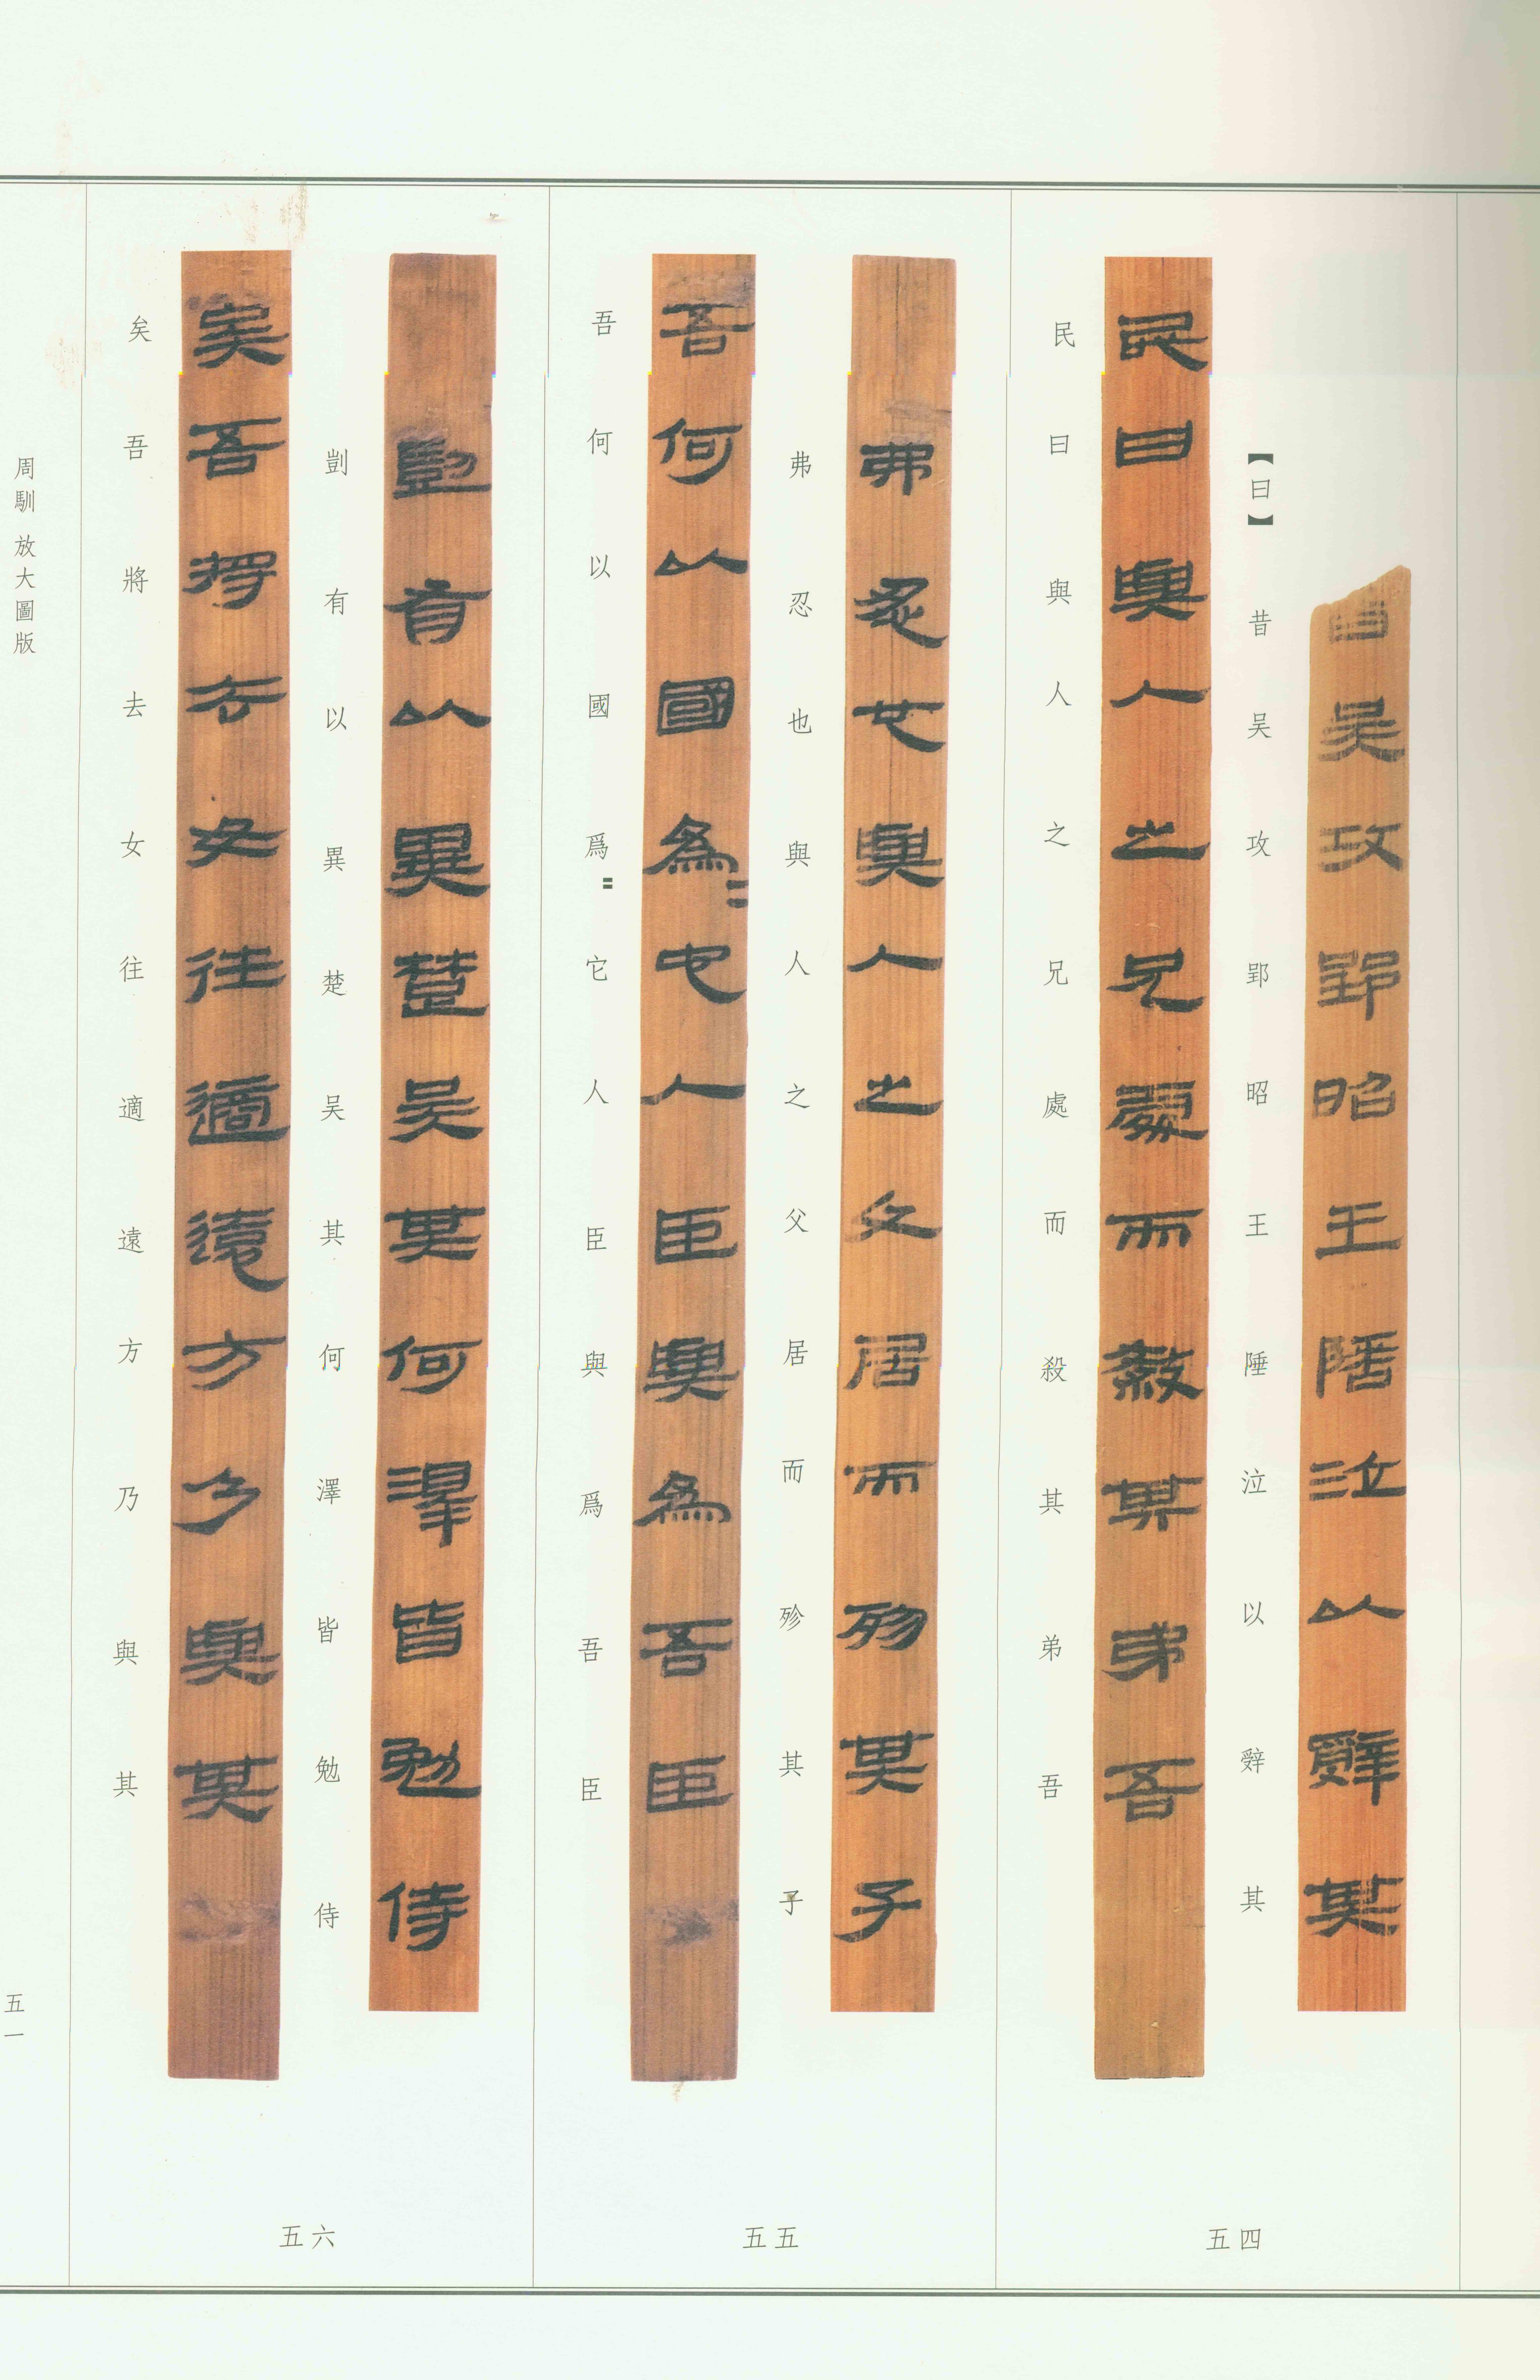 【曰】昔吴攻郢昭王陲泣以辤其
民曰與人之兄處而殺其弟吾
五四
弗忍也與人之父居而殄其子
吾何以國爲〓它人臣與爲吾臣
五五
剴有以異楚吴其何澤皆勉侍
矣吾將去女往適遠方乃與其
五六
周馴 放大圖版
五一